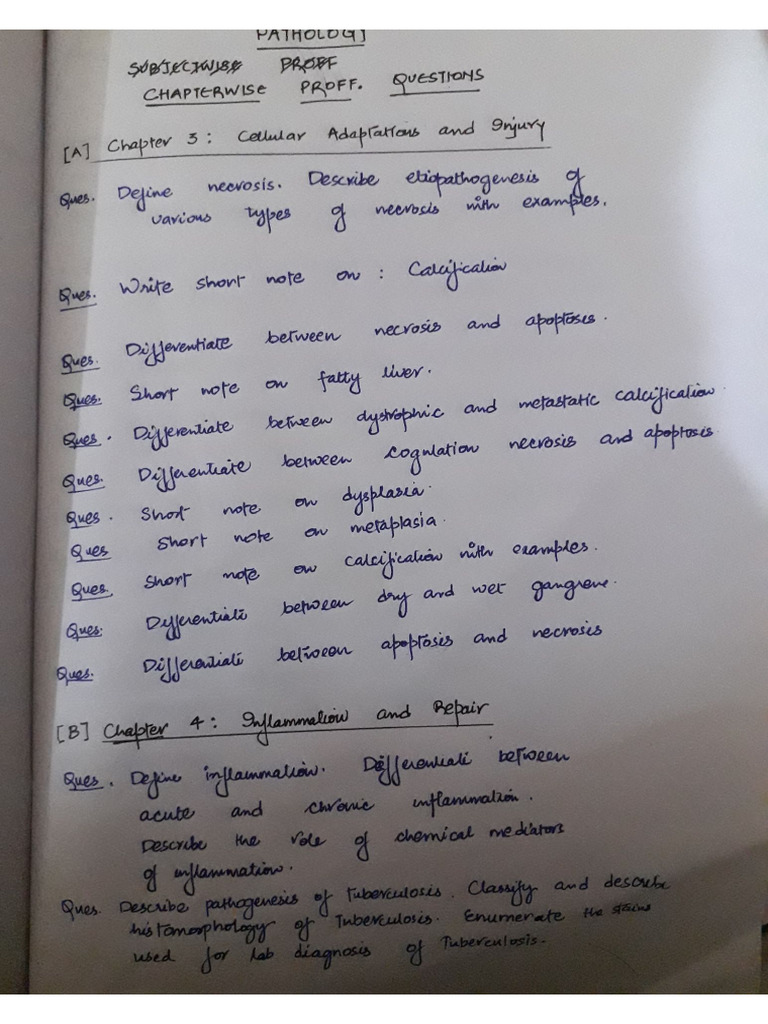 PATHOLOGY
SUBJECTWISE PROFF
CHAPTERWISE PROFF. QUESTIONS
[A] Chapter 3: Cellular Adaptations and Injury
Ques. Define necrosis. Describe etiopathogenesis of
various types of necrosis with examples.
Ques. Write short note on: Calcification
Ques. Differentiate between necrosis and apoptosis.
Ques. Short note on fatty liver.
Ques. Differentiate between dystrophic and metastatic calcification.
Ques. Differentiate between coagulation necrosis and apoptosis.
Ques. Short note on dysplasia.
Ques Short note on metaplasia.
Ques. Short note on calcification with examples.
Ques. Differentiate between dry and wet gangrene.
Ques. Differentiate between apoptosis and necrosis
[B] Chapter 4: Inflammation and Repair
Ques. Define inflammation. Differentiate between
acute and chronic inflammation.
Describe the role of chemical mediators
of inflammation.
Ques. Describe pathogenesis of Tuberculosis. Classify and describe
histomorphology of Tuberculosis. Enumerate the stains
used for lab diagnosis of Tuberculosis.